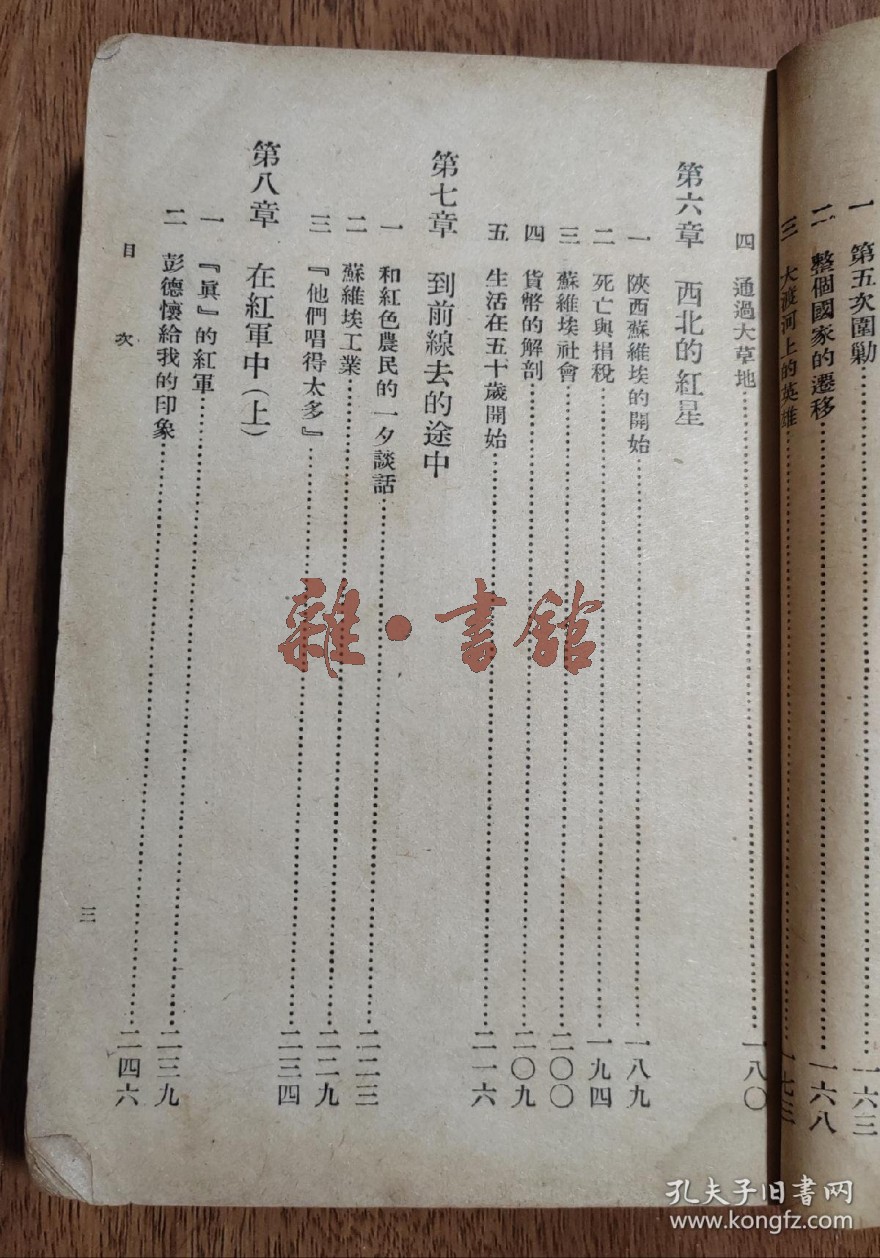 一 第五次圍勦……一六三
二 整個國家的遷移……一六八
三 大渡河上的英雄……一七三
四 通過大草地……一八〇
第六章 西北的紅星
一 陝西蘇維埃的開始……一八九
二 死亡與捐稅……一九四
三 蘇維埃社會……二〇〇
四 貨幣的解剖……二〇九
五 生活在五十歲開始……二一六
第七章 到前線去的途中
一 和紅色農民的一夕談話……二二三
二 蘇維埃工業……二二九
三 『他們唱得太多』……二三四
第八章 在紅軍中(上)
一 『眞』的紅軍……二三九
二 彭德懷給我的印象……二四六
目次
三
雜·書館
孔夫子旧书网
www.kongfz.com